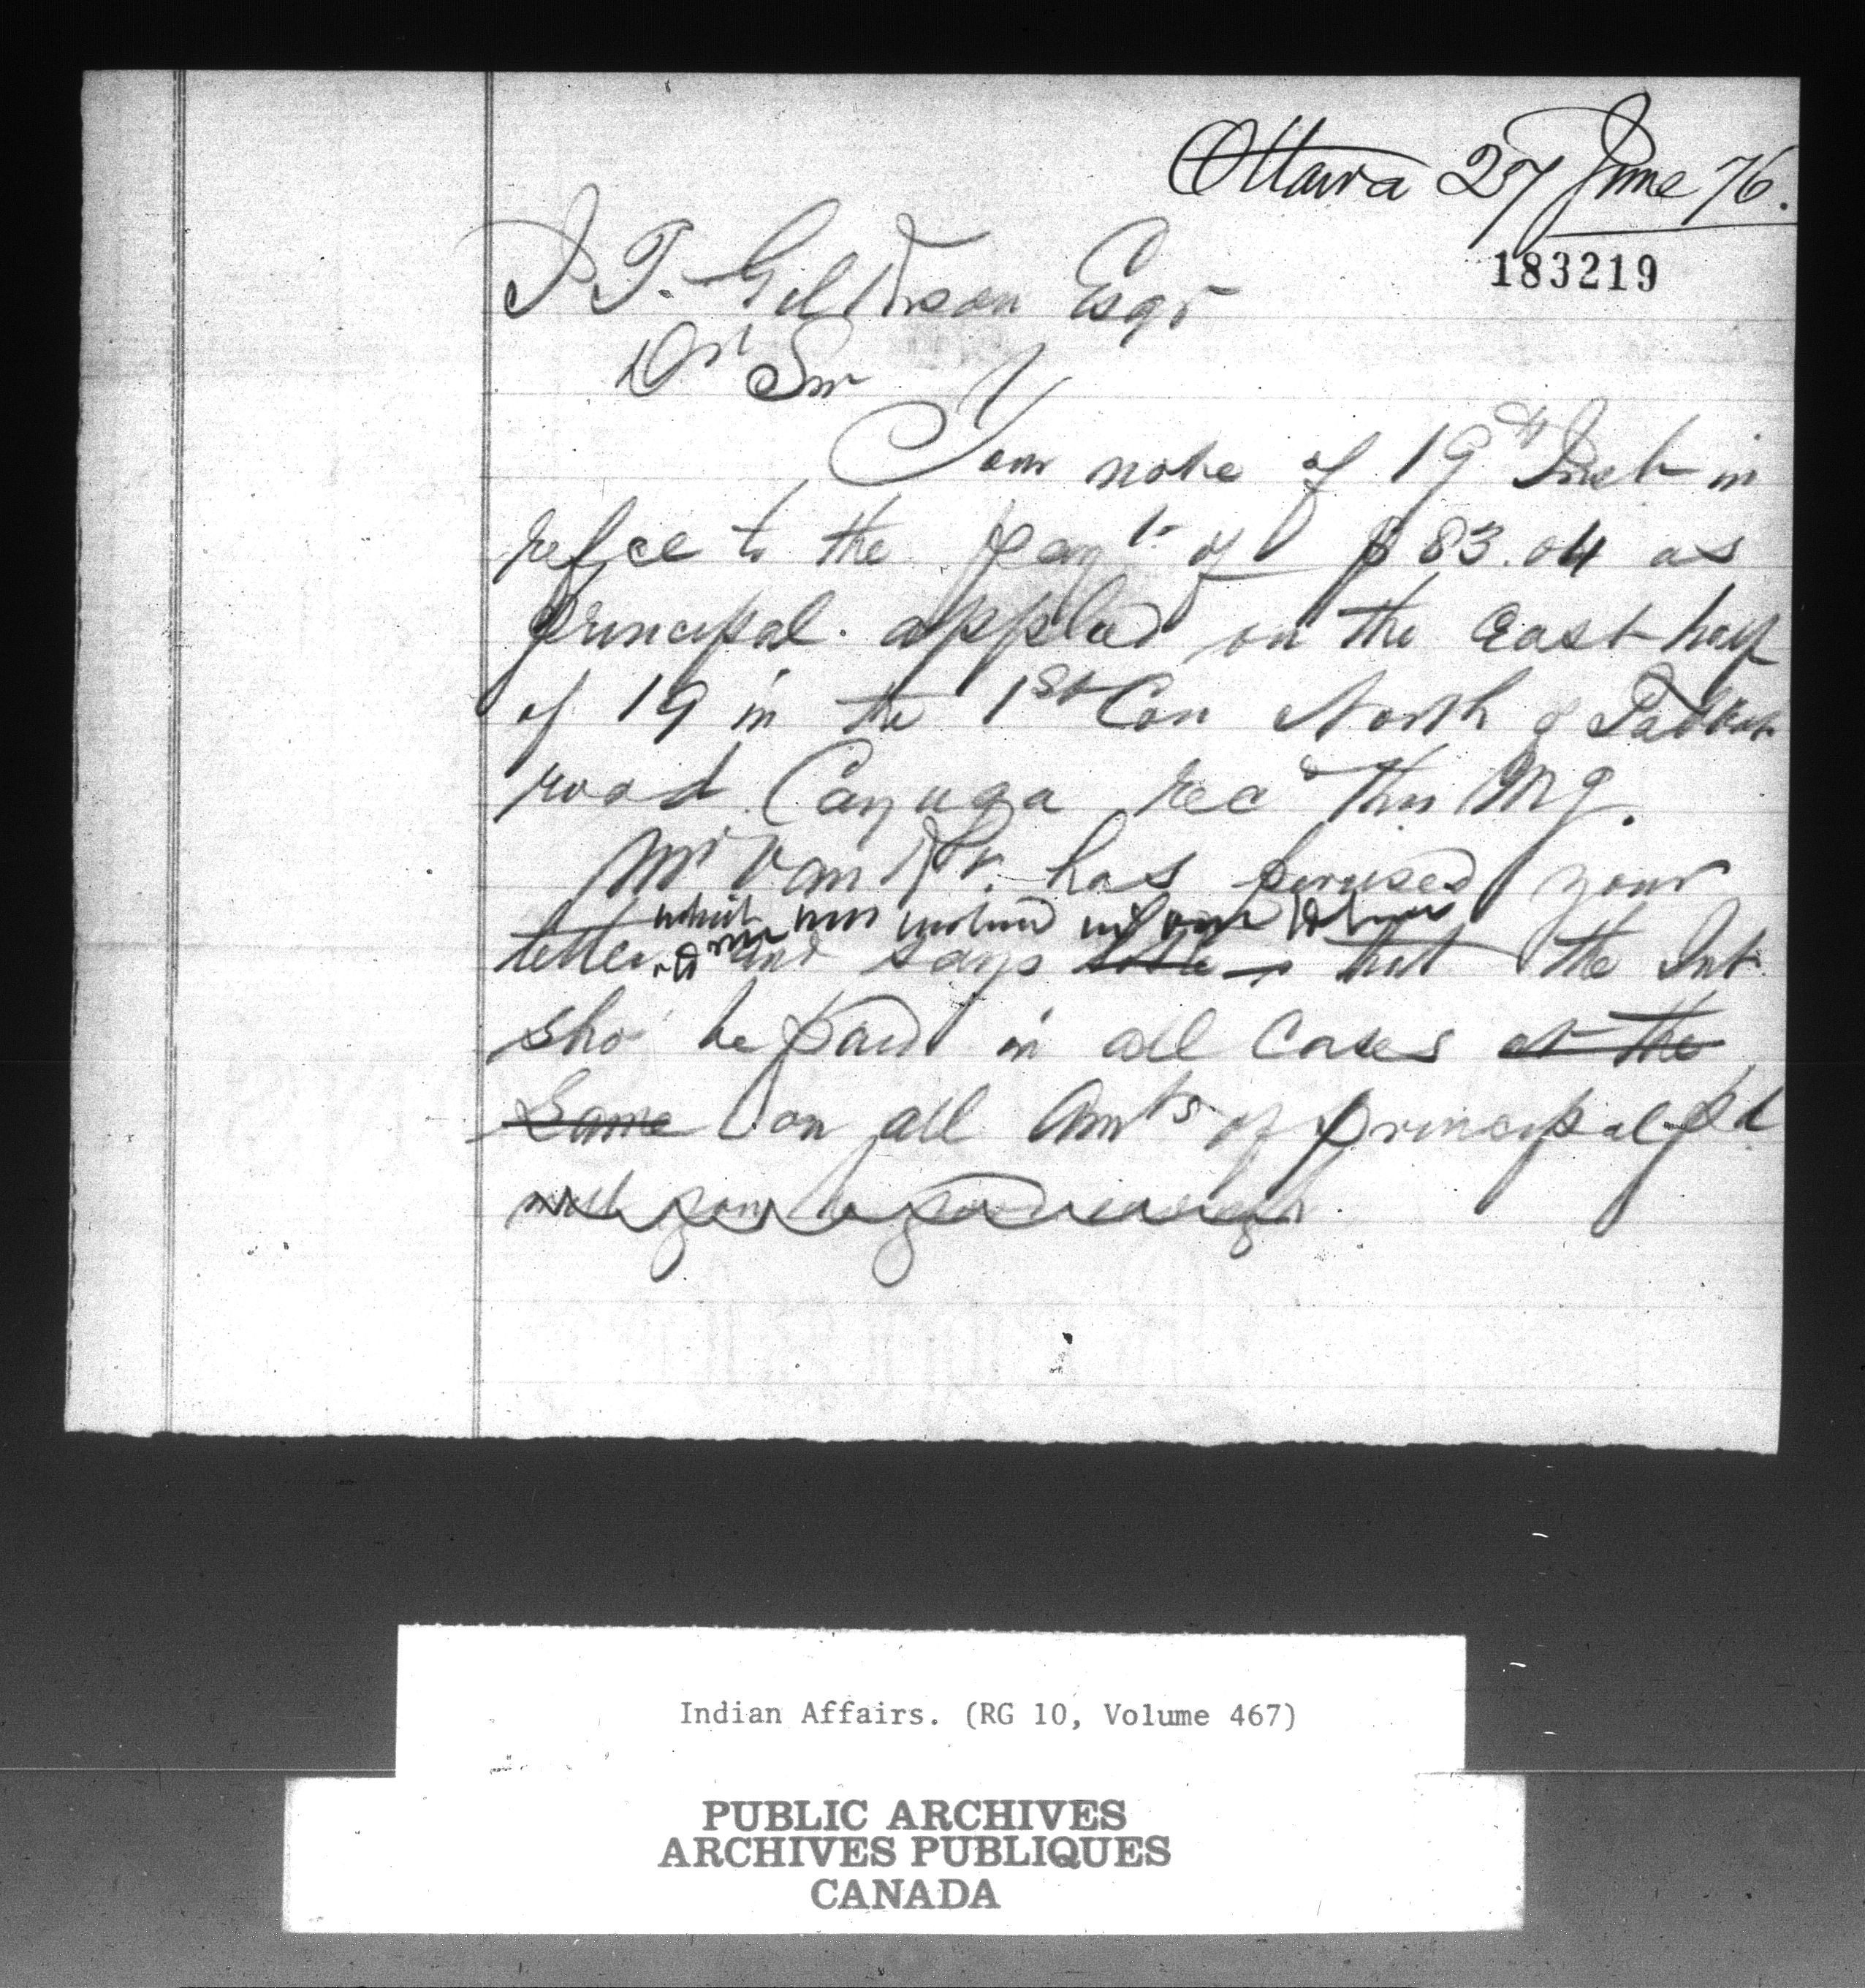 Ottawa 27 June 76.
183219
J T. Gilkison Esqr
Dr Sir
Your note of 19th Inst in
refce to the payt of $83.04 as
principal applied on the East half
of 19 in the 1st Con North of Talbot
road Cayuga recd this Mg.
Mr Van K. has perused your
which was
letter and says that the Int
sho be paid in all cases at the
Same on all Amts of principal pd
Indian Affairs. (RG 10, Volume 467)
PUBLIC ARCHIVES
ARCHIVES PUBLIQUES
CANADA